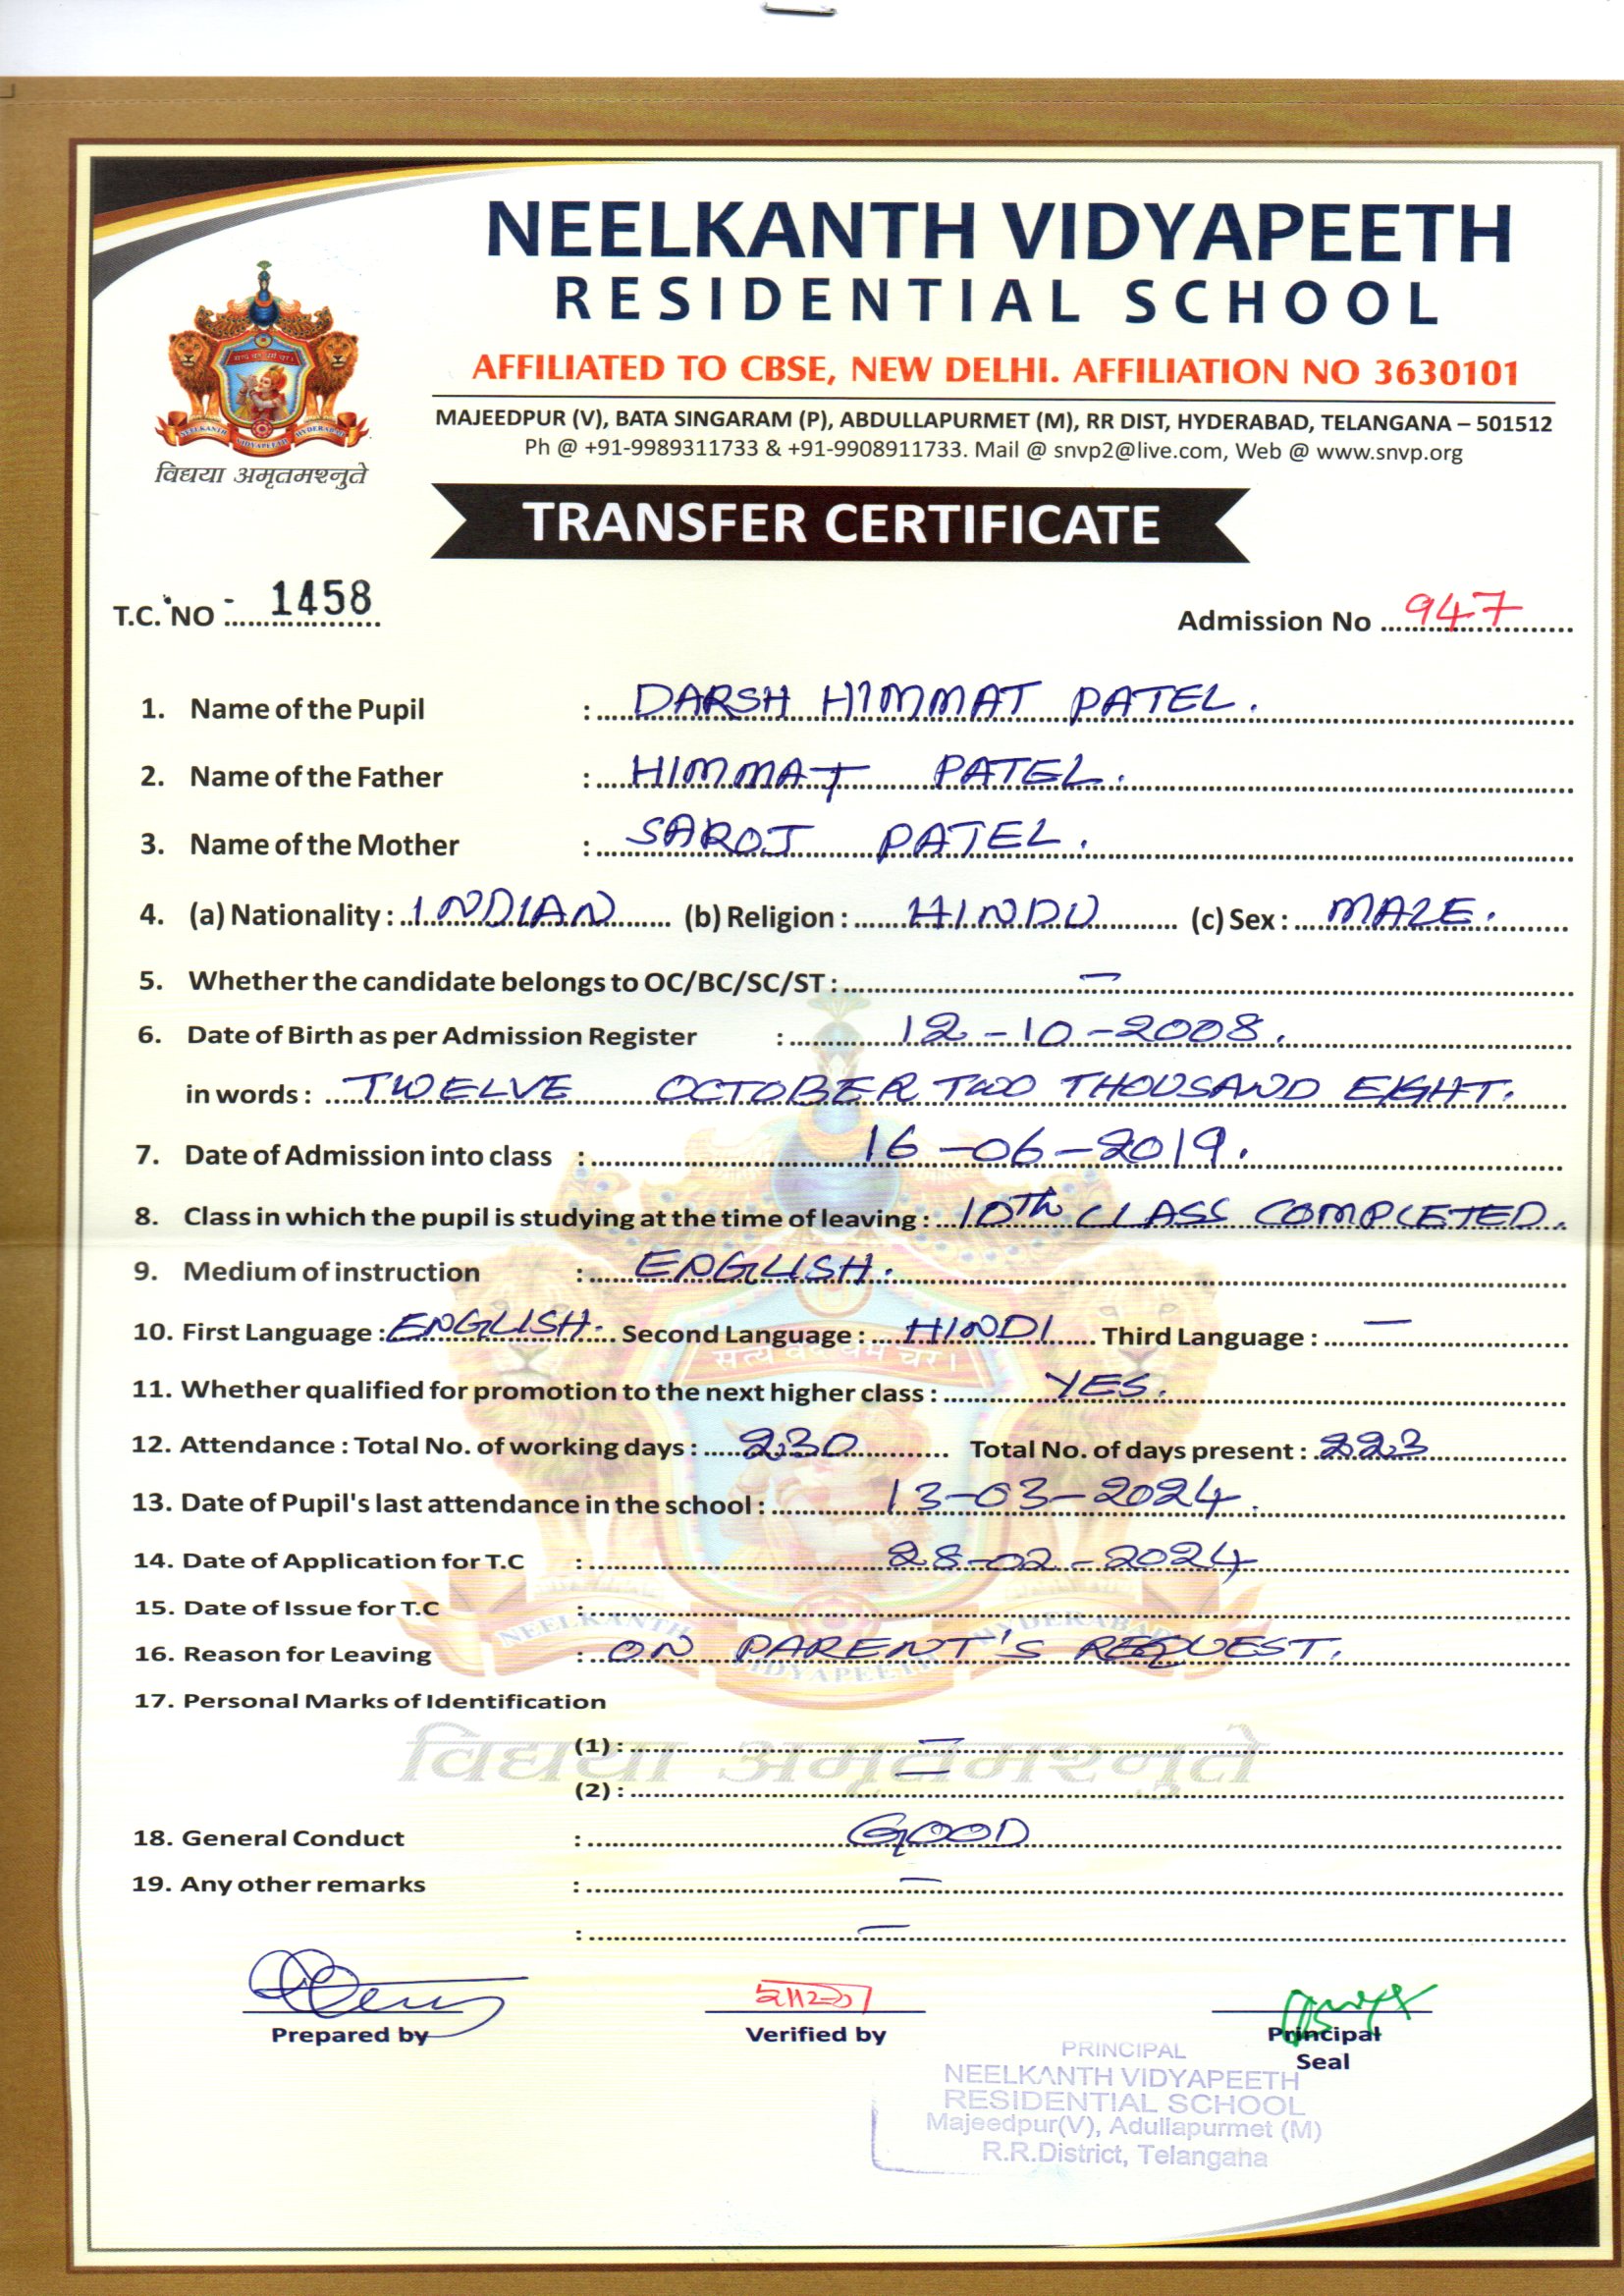 NEELKANTH VIDYAPEETH
RESIDENTIAL SCHOOL
AFFILIATED TO CBSE, NEW DELHI. AFFILIATION NO 3630101
MAJEEDPUR (V), BATA SINGARAM (P), ABDULLAPURMET (M), RR DIST, HYDERABAD, TELANGANA – 501512
Ph @ +91-9989311733 & +91-9908911733. Mail @ snvp2@live.com, Web @ www.snvp.org
NEELKANTH VIDYAPEETH HYDERABAD
विद्यया अमृतमश्नुते
TRANSFER CERTIFICATE
T.C. NO - 1458 Admission No 947
1. Name of the Pupil : DARSH HIMMAT PATEL.
2. Name of the Father : HIMMAT PATEL.
3. Name of the Mother : SAROJ PATEL.
4. (a) Nationality : INDIAN (b) Religion : HINDU (c) Sex : MALE.
5. Whether the candidate belongs to OC/BC/SC/ST : —
6. Date of Birth as per Admission Register : 12-10-2008.
in words : TWELVE OCTOBER TWO THOUSAND EIGHT.
7. Date of Admission into class : 16-06-2019.
8. Class in which the pupil is studying at the time of leaving : 10Th CLASS COMPLETED.
9. Medium of instruction : ENGLISH.
10. First Language : ENGLISH. Second Language : HINDI Third Language : —
सत्यं वद धर्मं चर।
11. Whether qualified for promotion to the next higher class : YES.
12. Attendance : Total No. of working days : 230 Total No. of days present : 223
13. Date of Pupil's last attendance in the school : 13-03-2024.
14. Date of Application for T.C : 28-02-2024
15. Date of Issue for T.C :
NEELKANTH VIDYAPEETH HYDERABAD
16. Reason for Leaving : ON PARENT'S REQUEST.
17. Personal Marks of Identification
(1) : —
विद्यया अमृतमश्नुते
(2) : —
18. General Conduct : GOOD
19. Any other remarks : —
: —
Prepared by Verified by Principal
Seal
PRINCIPAL
NEELKANTH VIDYAPEETH
RESIDENTIAL SCHOOL
Majeedpur(V), Adullapurmet (M)
R.R.District, Telangaha